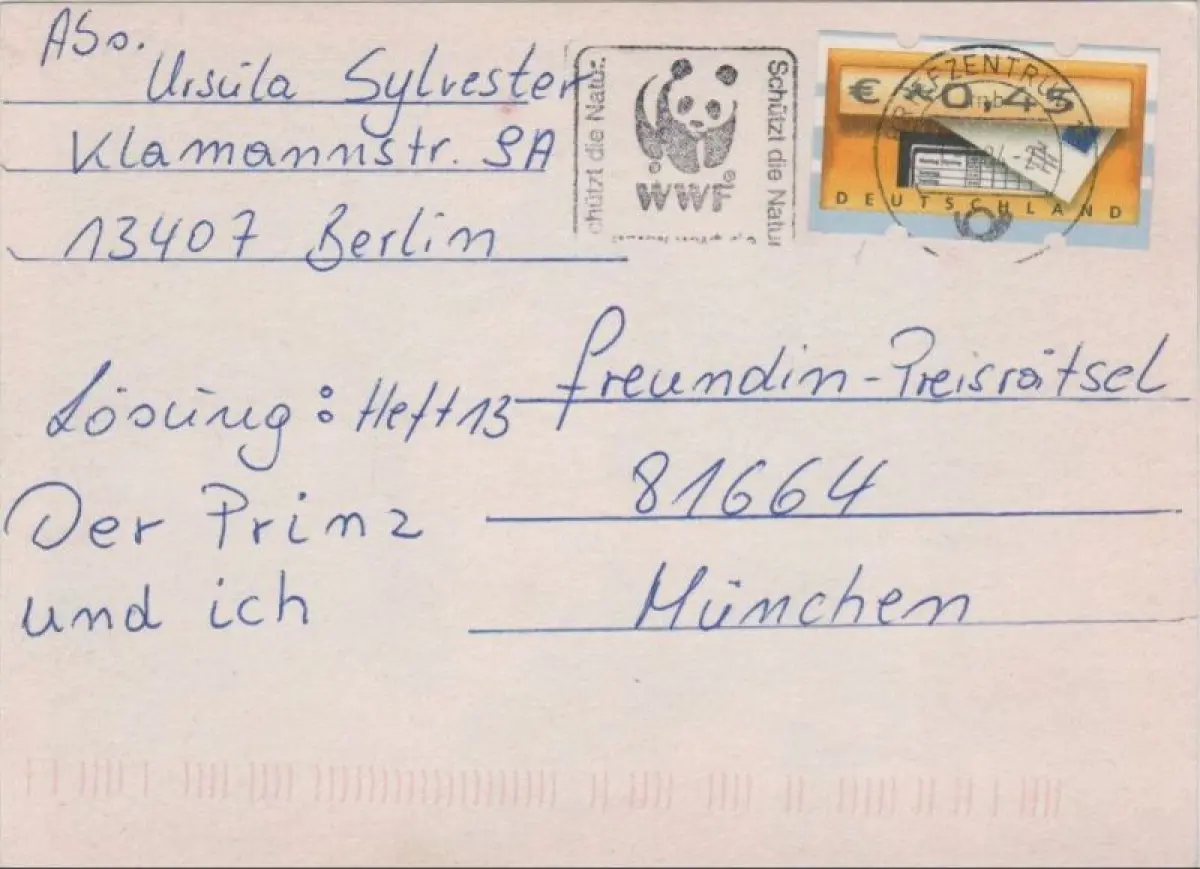 Abs.
Ursula Sylvester
Klamannstr. 9A
13407 Berlin
Schützt die Natur
WWF
Schützt die Natur
BRIEFZENTRUM
€ *0,45
DEUTSCHLAND
freundin-Preisrätsel
81664
München
Lösung: Heft 13
Der Prinz
und ich